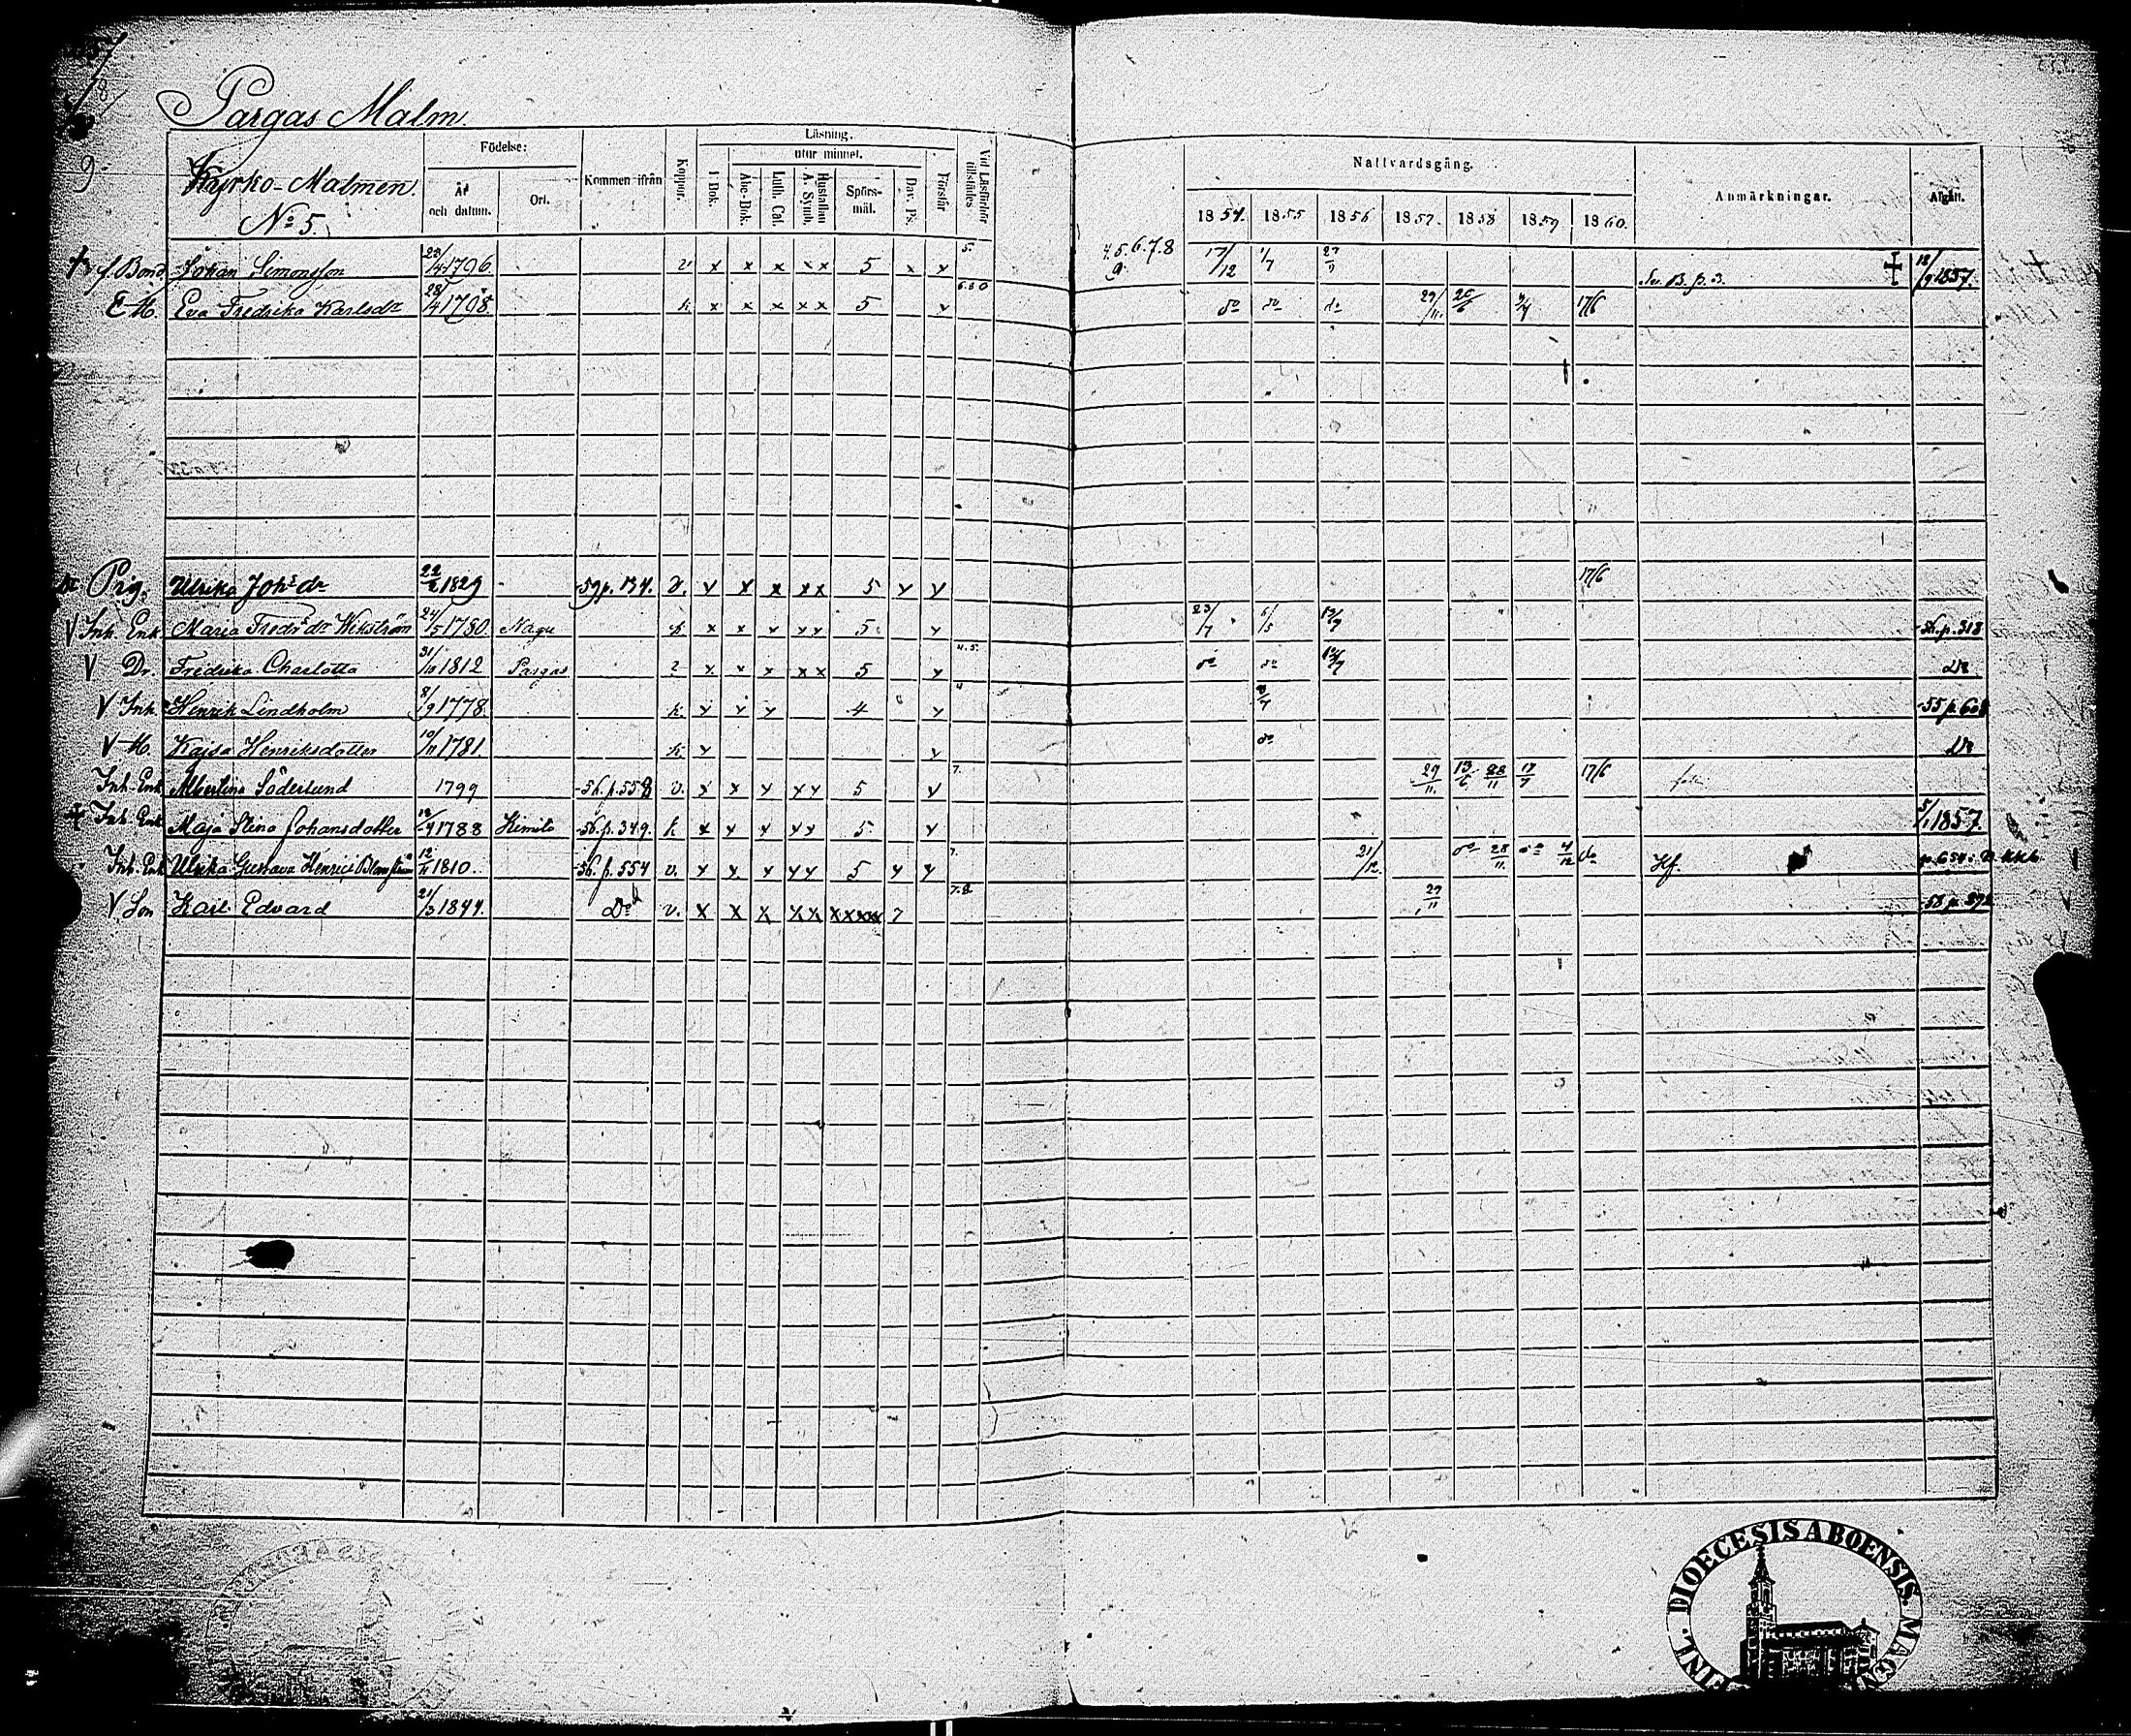 Pargas Malm.
Kyrko-Malmen.
No 5.
Födelse:
År och datum.
Ort.
Kommen ifrån
Koppor.
Läsning.
utur minnet.
I Bok.
Abc-Bok.
Luth. Cat.
Hustaflan A. Symb.
Spörs-mål.
Dav. Ps.
Förstår
Vid Läsförhör tillstädes
Nattvardsgång.
1854. 1855 1856 1857. 1858 1859 1860.
Anmärkningar.
Afgått.
f. Bond Johan Simonsson 23/4 1796. v x x x x x 5 x x 5. 4.5.6.7.8 9 17/12 1/7 27/9 12/9 1857.
E M. Eva Fredrika Karlsdr 28/4 1798. k x x x x x 5 x do do do 29/11. 26/6 17/6
Pig. Ulrika Johsdr 1829 59 p. 134. v. x x x x x 5 x x 17/6
Inh. Enk Maria Fredrsdr Wikström 24/5 1780. Nagu x x x x x 5. x 23/7 6/5 13/7 56. p. 318
Dr. Fredrika Charlotta 31/10 1812 Pargas x x x x x 5 x 4.5. do do Do
Inh Henrik Lindholm 8/9 1778. k. x x x 4 x 4 55 p. 608
M. Kajsa Henriksdotter 10/11 1781. k x x do Do
Inh. Enk Albertina Söderlund 1799 56. p. 558 v. x x x x x 5 x 7. 29/11. 13/6 28/11 17/6
Inh. Enk Maja Stina Johansdotter 1788 Kimito 56. p. 349. k x x x x x 5. x 5/1 1857.
Inh. Enk Ulrika Gustava Henrics 12/11 1810. 56. p. 554 v. x x x x x 5 x x 7. 21/12. do 28/11. do 4/12 do p. 654
Son Karl Edvard 21/3 1844. Do v. x x x x x x x x x x 7 7.8 29/11 58 p.
DIOECESIS ABOENSIS